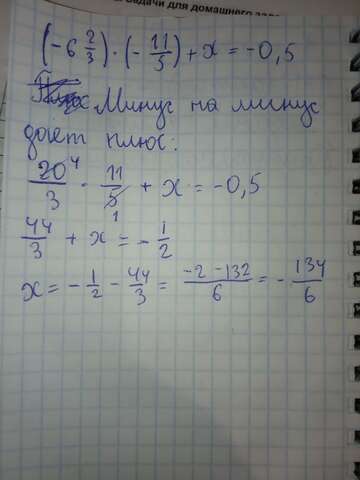 задачи для домашнего зада
(-6 2/3) · (- 11/5) + x = -0,5
Минус на минус
дает плюс:
20⁴/3 · 11/5₁ + x = -0,5
44/3 + x = - 1/2
x = - 1/2 - 44/3 = -2-132/6 = - 134/6